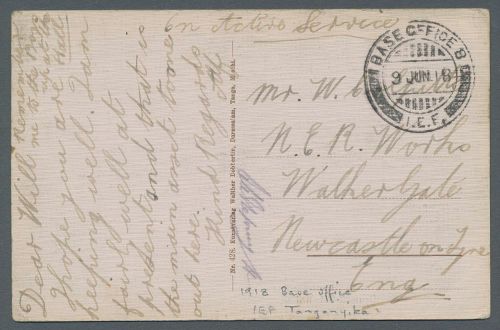 On Active Service
BASE OFFICE B
9 JUN. 18
I.E.F.
Mr. W.
N.E.R. Works
Walker Gate
Newcastle on Tyne
Eng
Dear Will
I hope you are
keeping well. I am
fairly well at
present and that is
the main asset
out here.
Kind Regards
Alf.
Remember
me to the Boys
up at the
Hall
Nr. 428. Kunstverlag Walther Dobbertin, Daressalam, Tanga, Moshi.
1918 Base office
IEF Tanganyika.